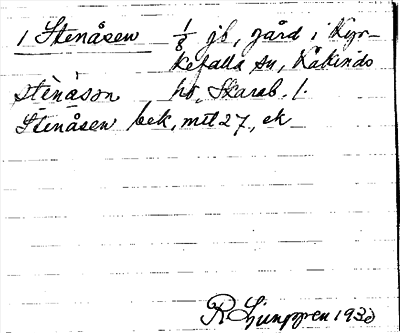 1 Stenåsen 1/8 jb, gård i Kyr-
kefalla sn, Kåkinds
stènáson hd, Skarab. l.
Stenåsen bek, mtl 27, ek
R Ljunggren 1930